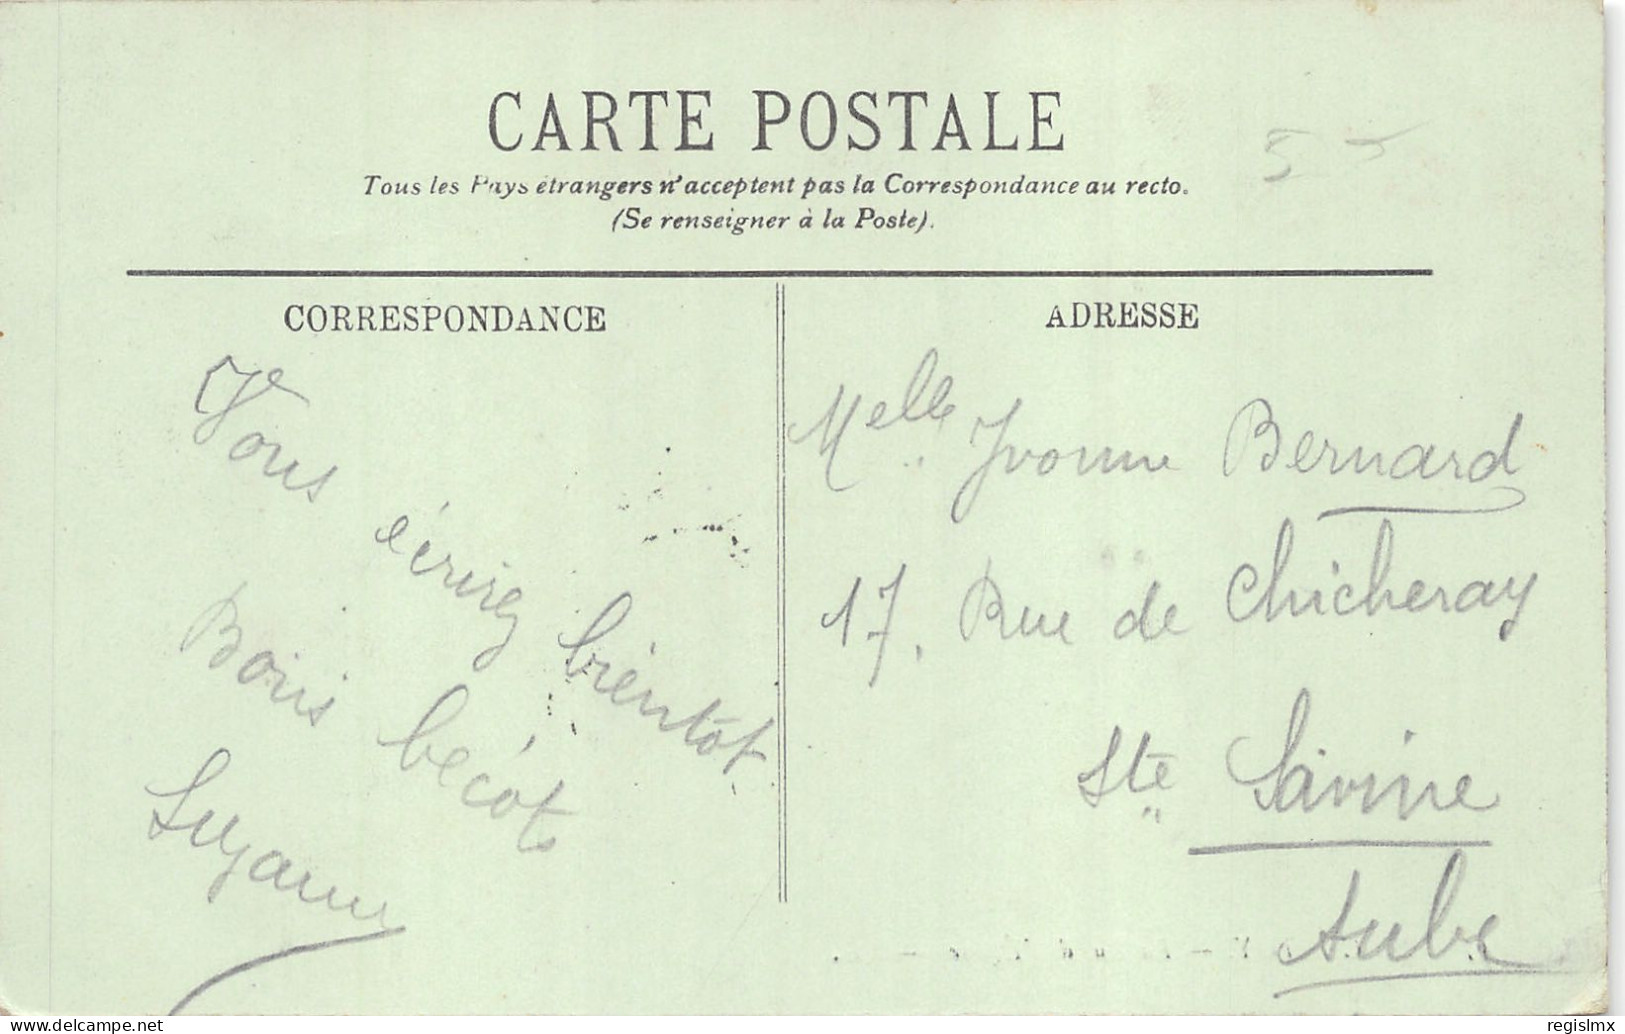 CARTE POSTALE
Tous les Pays étrangers n'acceptent pas la Correspondance au recto.
(Se renseigner à la Poste).
CORRESPONDANCE
Vous
écrirez
bientôt
Bons
bécots
Suzanne
ADRESSE
Melle Yvonne Bernard
17, Rue de Chicheray
Ste Savine
Aube
www.delcampe.net
regislmx